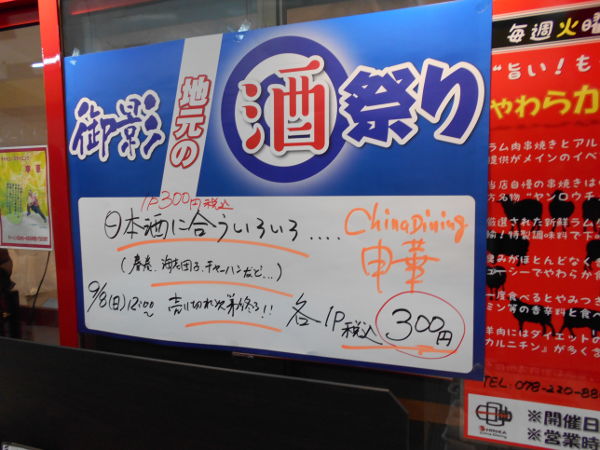 御影
地元の
酒祭り
1P300円税込
日本酒に合ういろいろ....
(春巻、海老団子、チャーハンなど...)
9/8(日)12:00〜 売り切れ次第終る!!
各1P税込 300円
China Dining
申華
毎週火曜
"旨い!も
やわらか
ラム肉串焼きとアル
提供がメインのイベ
当店自慢の串焼きは
方名物"ヤンロウチ
厳選された新鮮ラム
輸!特製調味料で下
臭みがほとんどなく
ーシーでやわらか食
一度食べるとやみつき
ミン等の香辛料と食べ
羊肉にはダイエットの
カルニチン』が多く含
TEL:078-220-88
※開催日
※営業時